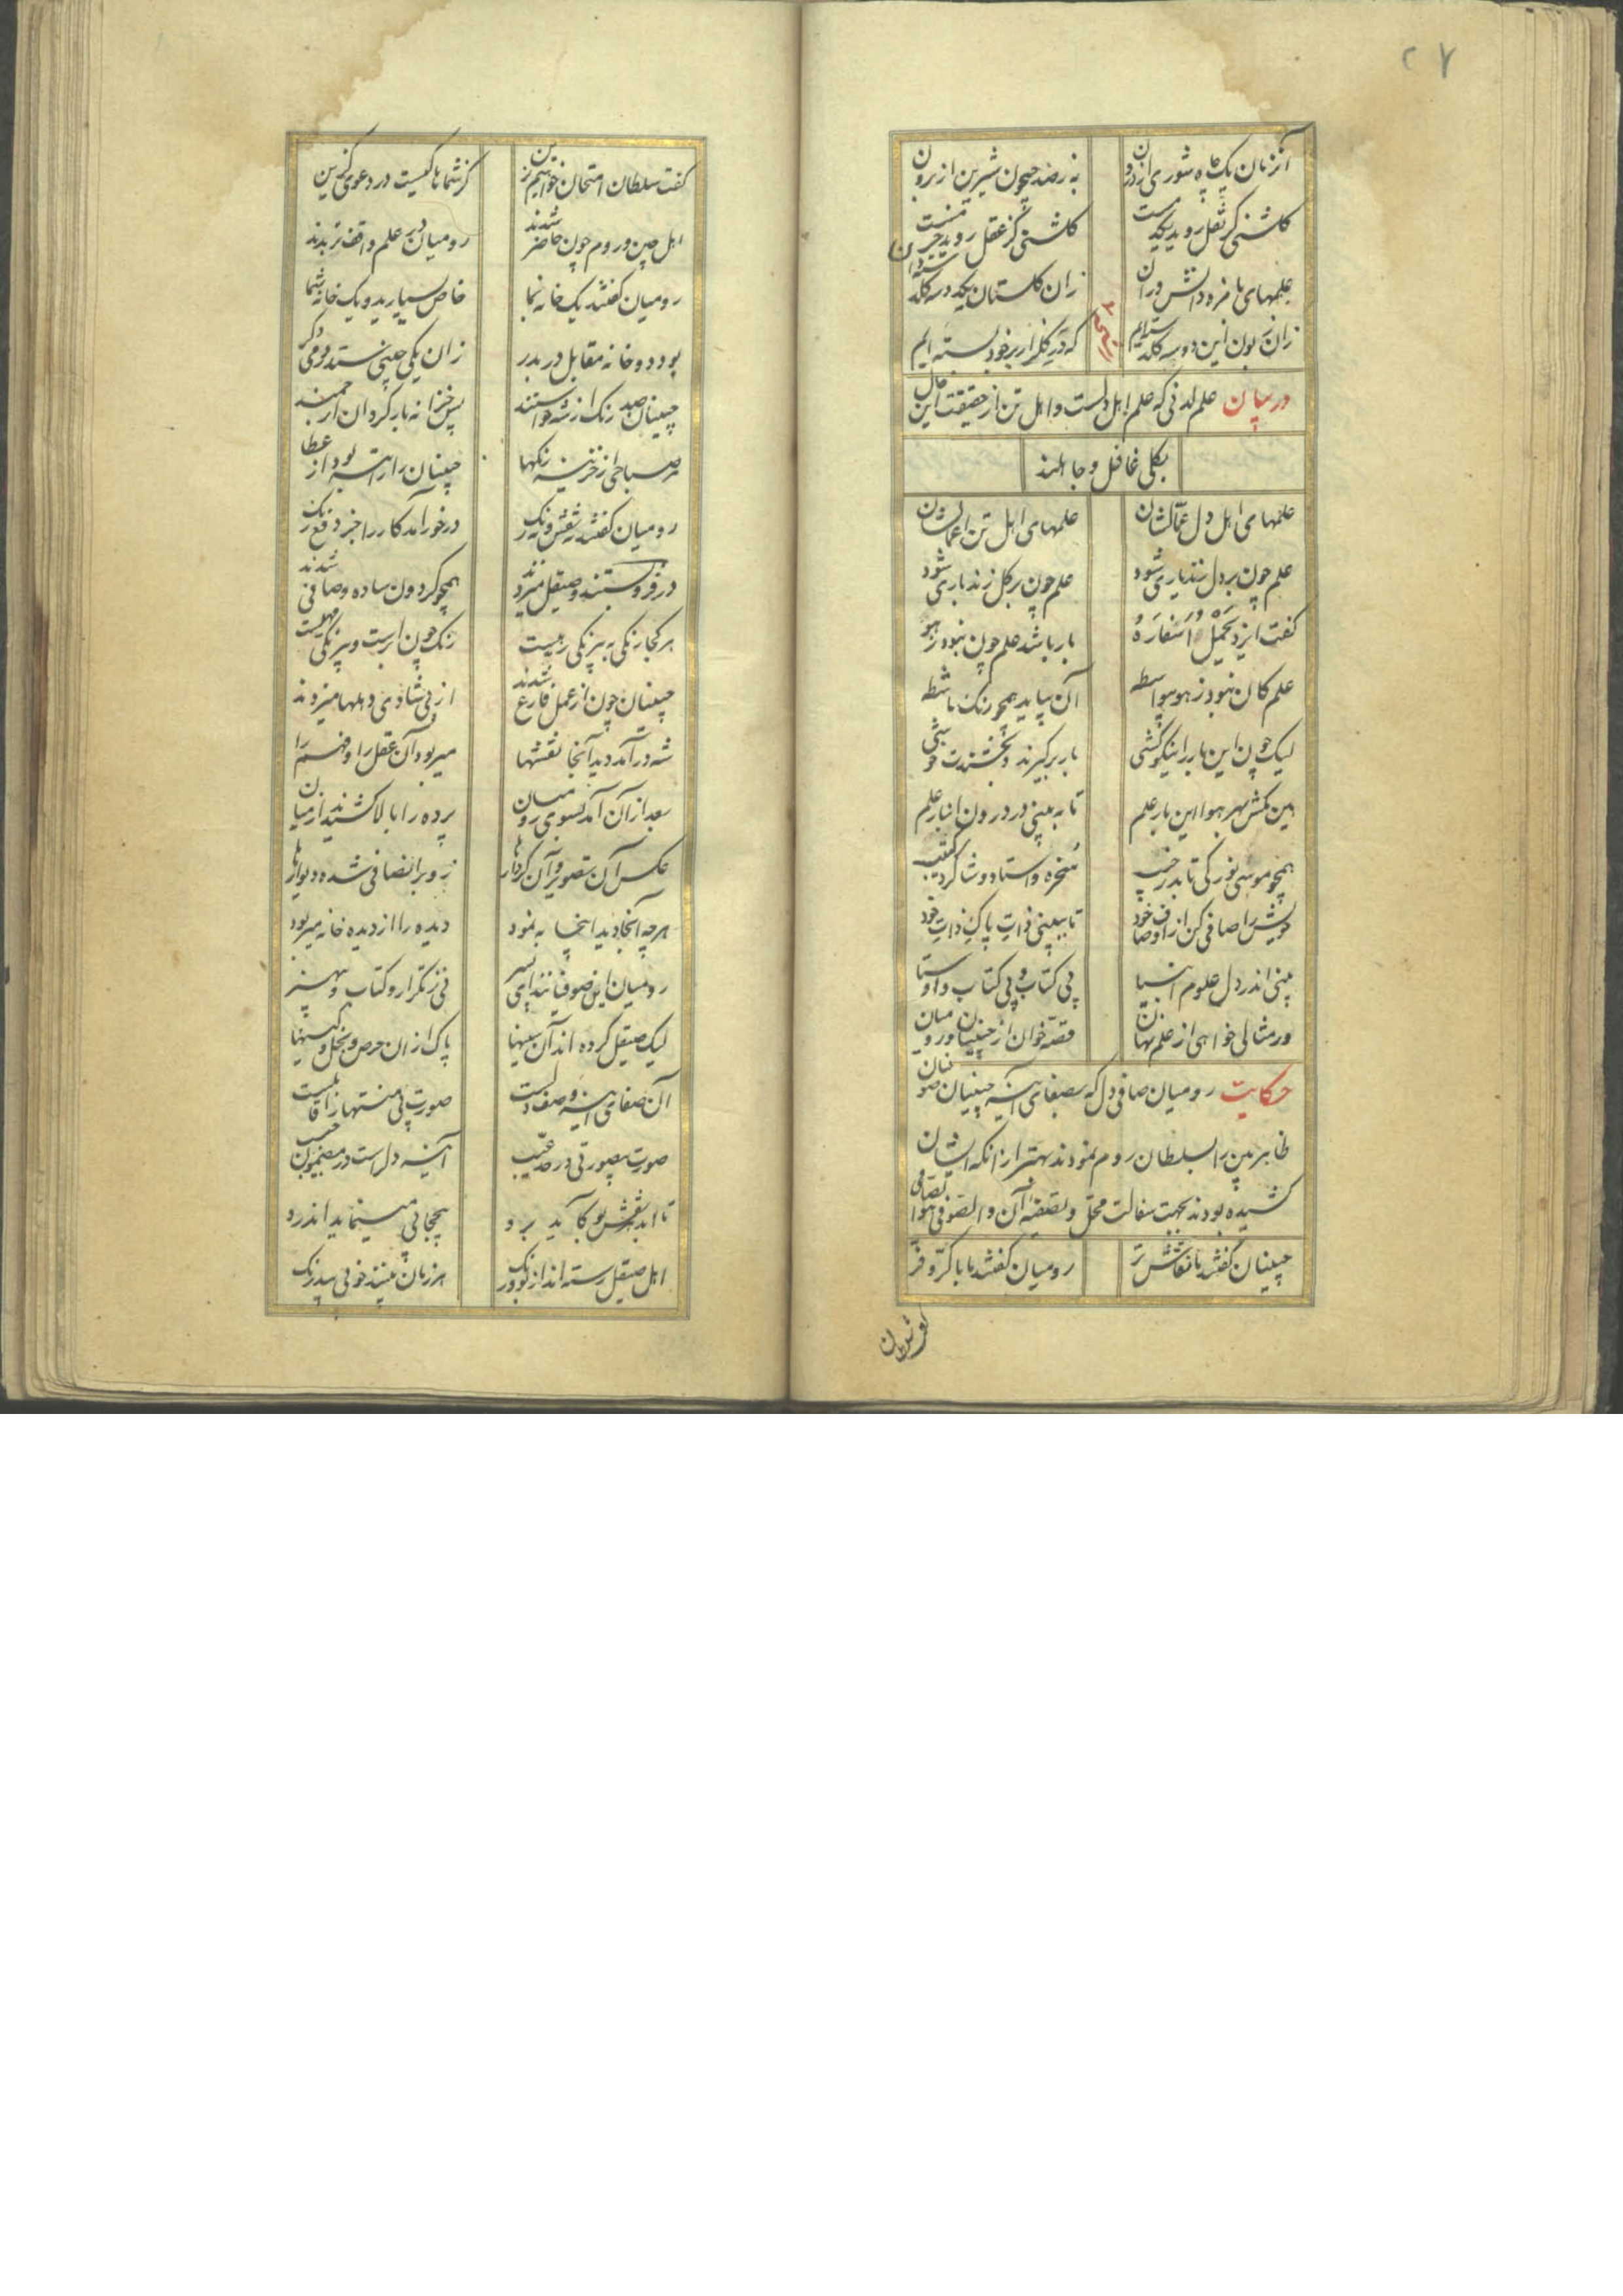 ۲۷
آنزمان یک چاه شوری از درون به ز صد جیحون شیرین از برون
گلشنی کز نقل روید یکدمست گلشنی کز عقل روید خرمست
علمهای با مزه دانش دران زان گلستان یکدوسه گلدسته دان
زان زبون این دوسه گلدسته‌ایم که در گلزار بر خود بسته‌ایم
در بیان علم لدنی که علم اهل دلست و اهل تن از حقیقت این حال
بکلی غافل و جاهلند
علمهای اهل دل حمّالشان علمهای اهل تن احمالشان
علم چون بر دل زند یاری شود علم چون بر گل زند باری شود
گفت ایزد یَحْمِلُ اَسْفارَهُ بار باشد علم چون نبود ز هو
علم کان نبود ز هو بیواسطه آن نپاید همچو رنگ ماشطه
لیک چون این بار را نیکو کشی بار برگیرند و بخشندت خوشی
هین مکش بهر هوا این بار علم تا به بینی در درون انبار علم
خویش را صافی کن از اوصاف خود تا ببینی ذاتِ پاکِ ذاتِ خود
بینی اندر دل علوم انبیا بی کتاب و بی کتاب و اوستا
ور مثالی خواهی از علم نهان قصه خوان از چینیان و رومیان
حکایت رومیان صافی دل که بصفای آینه چینیان
ظاهر بین را بسلطان روم نمودند بهتر از آنکه ایشان
کشیده بودند بجهت
چینیان گفتند ما نقاش تر رومیان گفتند ما با کرّ و فرّ
گفت سلطان امتحان خواهم درین کز شماها کیست در دعوی گزین
اهل چین و روم چون حاضر شدند رومیان در علم واقف تر بدند
رومیان گفتند یک خانه بما خاص بسپارید و یک خانه شما
بود دو خانه مقابل در بدر زان یکی چینی ستد رومی دگر
چینیان صد رنگ از شه خواستند پس خزانه باز کرد آن ارجمند
هر صباحی از خزینه رنگها چینیان را راتبه بود از عطا
رومیان گفتند نه نقش و نه رنگ در خور آمد کار را جز دفع زنگ
در فرو بستند و صیقل میزدند همچو گردون ساده و صافی شدند
رنگ چون ابرست و بیرنگی مهیست
چینیان چون از عمل فارغ شدند از پی شادی دهلها میزدند
شه در آمد دید آنجا نقشها میربود آن عقل را و فهم را
بعد ازان آمد بسوی رومیان پرده را بالا کشیدند از میان
عکس آن تصویر و آن کردارها زد برین صافی شده دیوارها
هرچه آنجا دید اینجا به نمود دیده را از دیده خانه میربود
رومیان این صوفیانند ای پسر نی ز تکرار و کتاب و هنر
لیک صیقل کرده‌اند آن سینها پاک ازان حرص و بخل و کینها
آن صفای آینه وصف دلست صورت بی منتها را قابلست
صورت بیصورتی در حد غیب آینه دل راست در
تا ابد هر نقش نو کآید برو بیحجابی مینماید اندرو
اهل صیقل رسته‌اند از بو و رنگ هر زمان بینند خوبی بیدرنگ